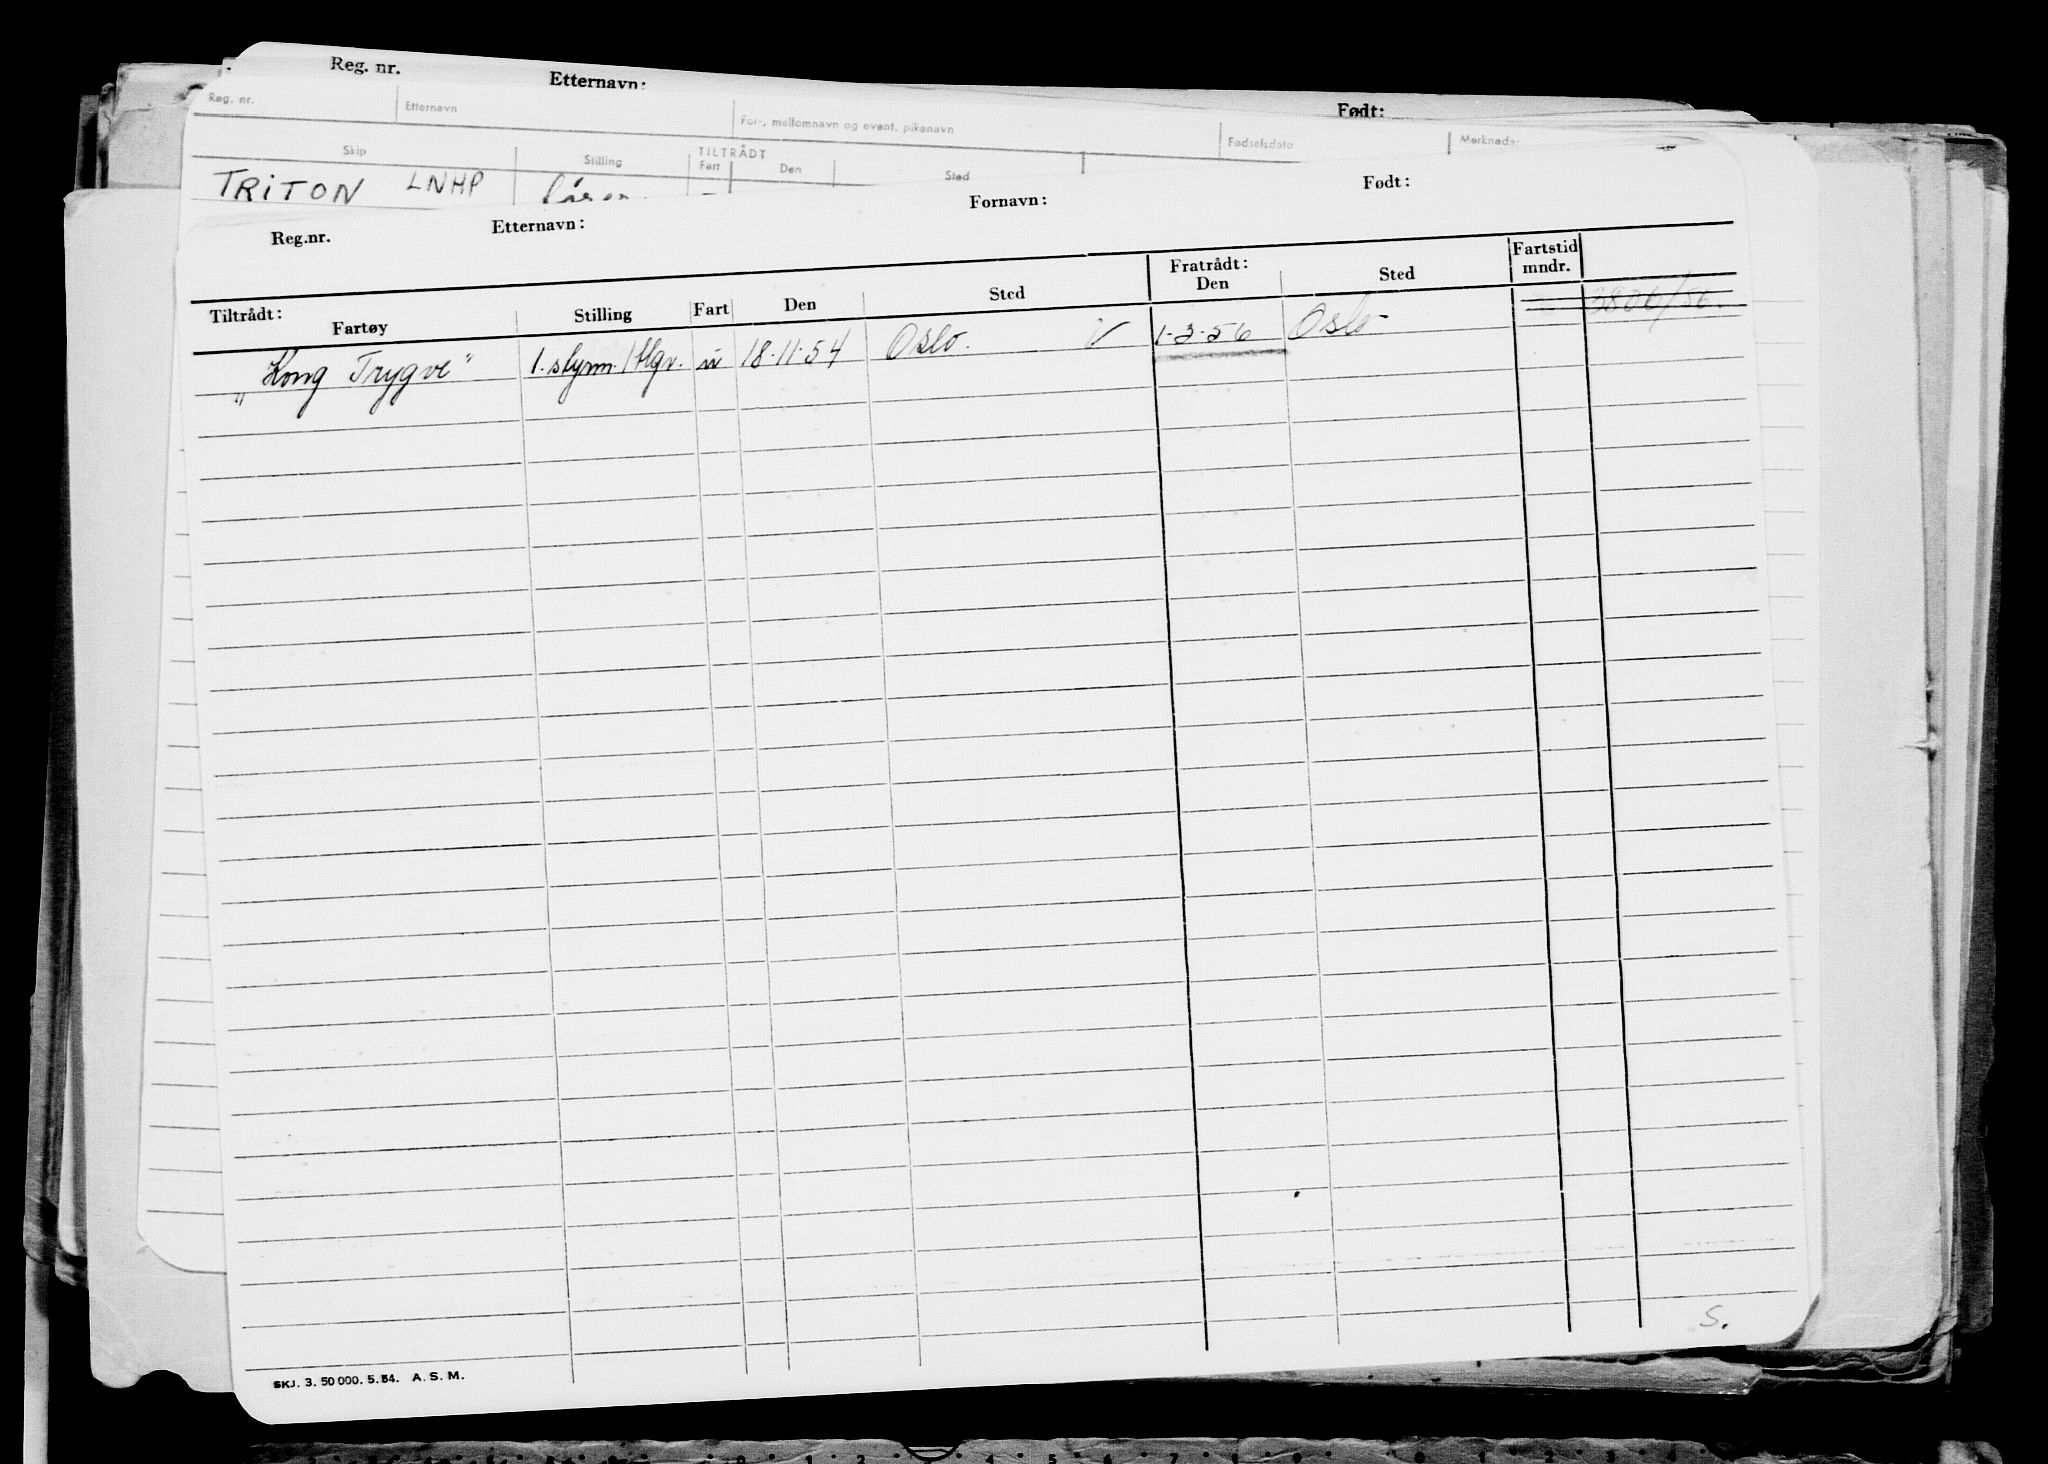 Reg. nr. Etternavn: Født:
Reg. nr. Etternavn For-, mellomnavn og event. pikenavn Fødselsdato Merknader
Skip Stilling TILTRÅDT
Fart Den Sted
TRITON LNHP
Reg.nr. Etternavn: Fornavn: Født:
Tiltrådt: Fartøy Stilling Fart Den Sted Fratrådt: Den Sted Fartstid mndr.
"Kong Trygve" 1. styrm. u 18.11.54 Oslo. V 1-3-56 Oslo
S.
SKJ. 3. 50 000. 5. 54. A. S. M.
0 1 2 3 4 5 6 7 8 9 0 1 2 3 4